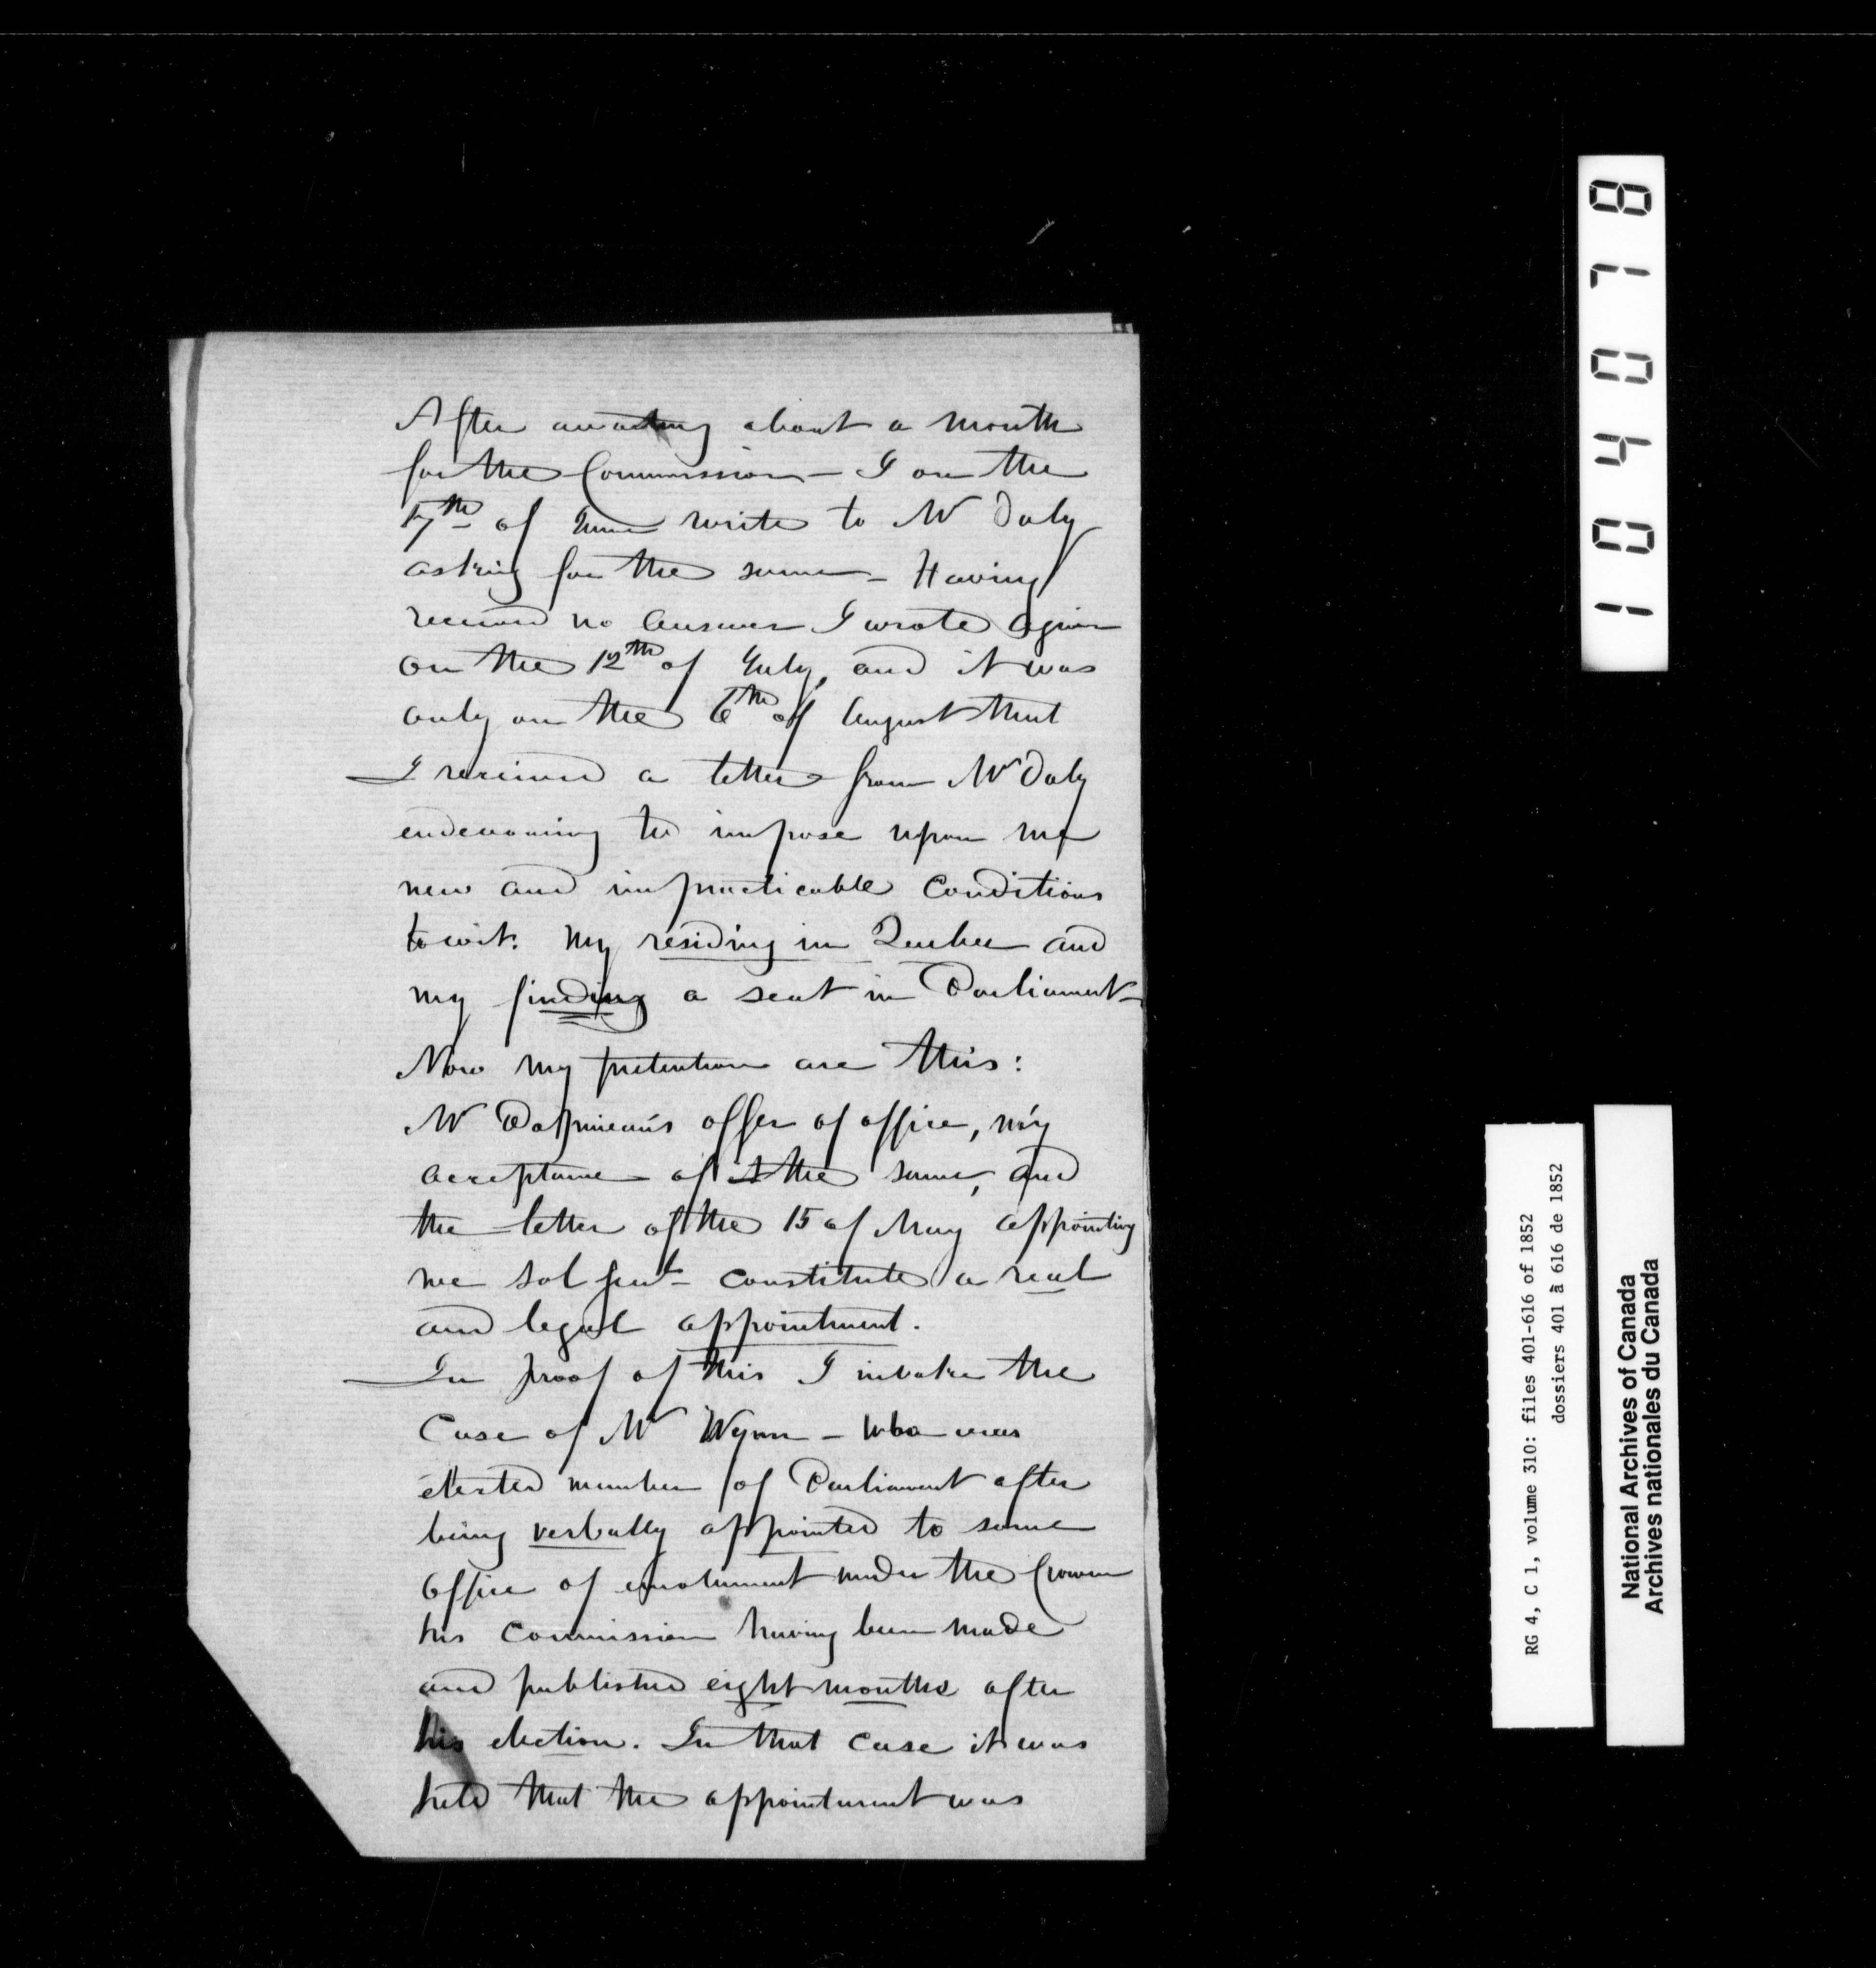 After awaiting about a month
for the Commission – I on the
17th of June write to Mr Daly
asking for the same – Having
received no answer I wrote again
on the 12th of July, and it was
only on the 6th of August that
I received a letter from Mr Daly
endeavoring to impose upon me
new and impracticable conditions
to wit: my residing in Quebec and
my finding a seat in Parliament –
Now my pretentions are this:
Mr Papineau's offer of office, my
acceptance of the same, and
the letter of the 15 of May appointing
me Sol Genl – constitute a real
and legal appointment.
In proof of this I invoke the
Case of Mr Wynn – who was
elected member of Parliament after
being verbally appointed to some
Office of emolument under the Crown
his Commission having been made
and published eight months after
his election. In that case it was
held that the appointment was
1 0 4 0 7 8
RG 4, C 1, volume 310: files 401-616 of 1852
dossiers 401 à 616 de 1852
National Archives of Canada
Archives nationales du Canada